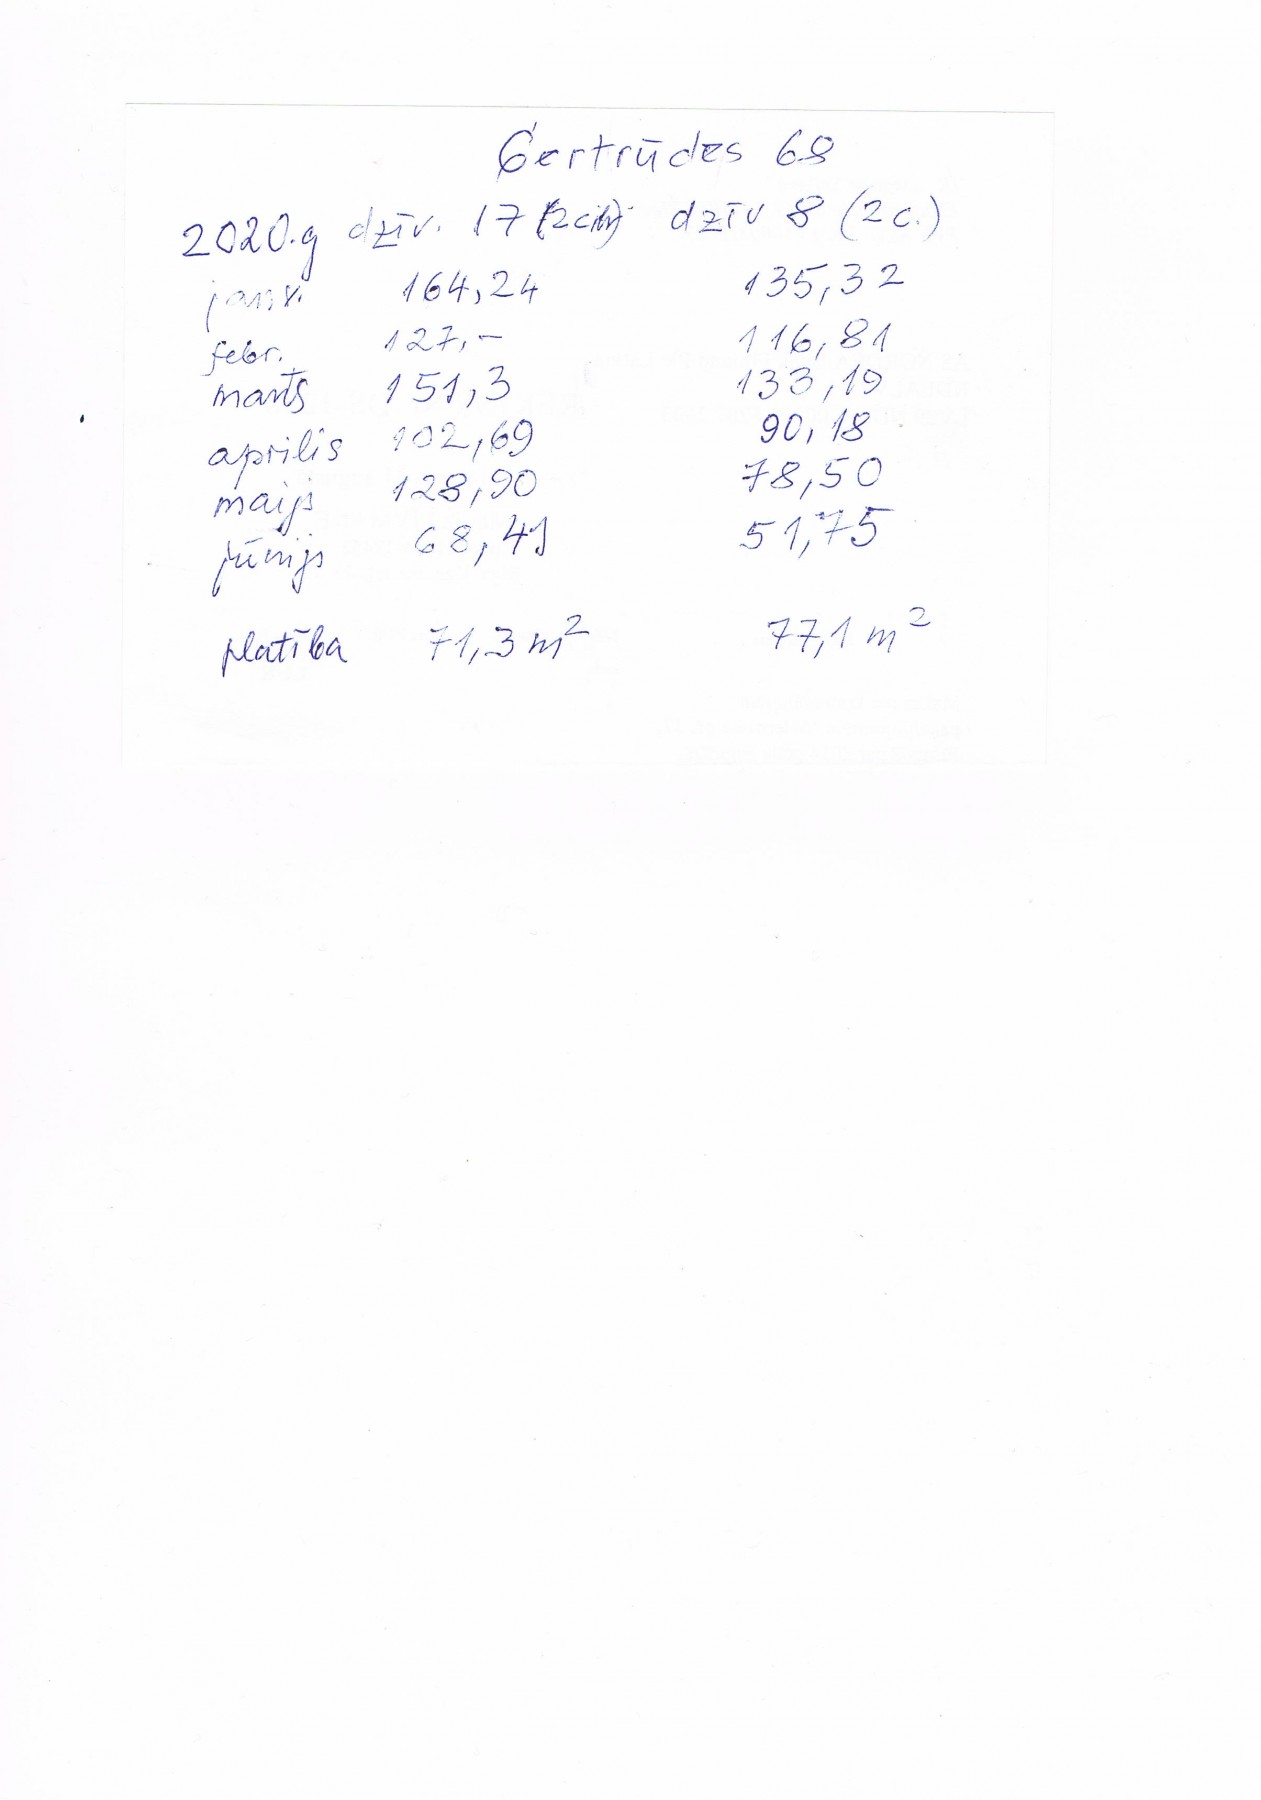 Ģertrūdes 68
2020.g dzīv. 17 (2 cilv) dzīv 8 (2 c.)
janv. 164,24 135,32
febr. 127,- 116,81
marts 151,3 133,19
aprilis 102,69 90,18
maijs 128,90 78,50
jūnijs 68,41 51,75
platība 71,3 m² 77,1 m²